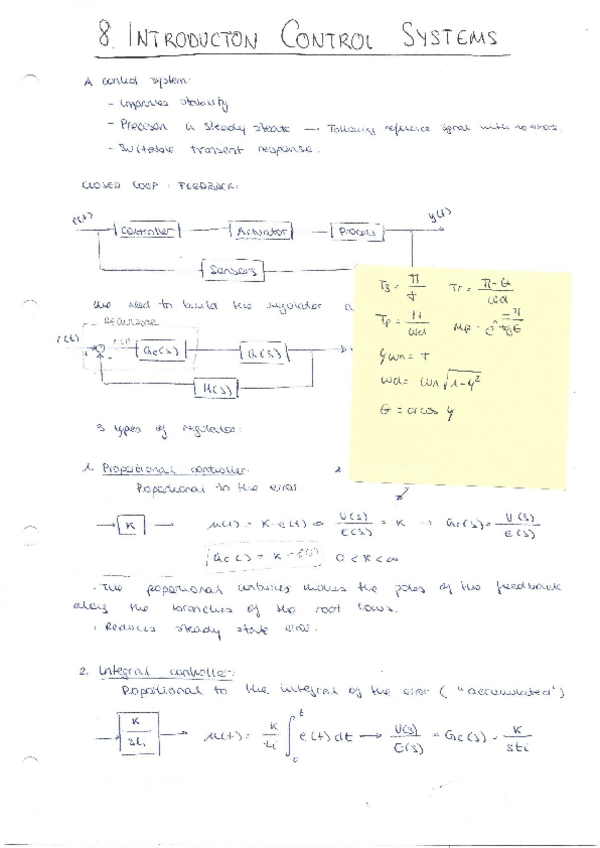 8. INTRODUCTON CONTROL SYSTEMS
A control system:
- Improves stability
- Precision in steady state → Following reference signal with no error.
- Suitable transient response.
CLOSED LOOP: FEEDBACK:
r(t) Controller Actuator Process y(t)
Sensors
We need to build the regulator
REGULATOR
r(t) Gc(s) G(s)
H(s)
Ts = π/σ Tr = π-θ/ωd
Tp = π/ωd Mp = e^-π/tgθ
ζωn = σ
ωd = ωn √1-ζ²
θ = arcos ζ
3 types of regulator:
1. Proportional controller:
Proportional to the error
K u(t) = K·e(t) U(s)/E(s) = K → Gc(s) = U(s)/E(s)
0 < K < ∞
· The poportional controller moves the poles of the feedback
along the branches of the root locus.
· Reduces steady state error.
2. Integral controller:
Poportional to the integral of the error ("accumulated")
K/sti u(t) = K/ti ∫₀ᵗ e(t) dt → U(s)/E(s) = Gc(s) = K/sti